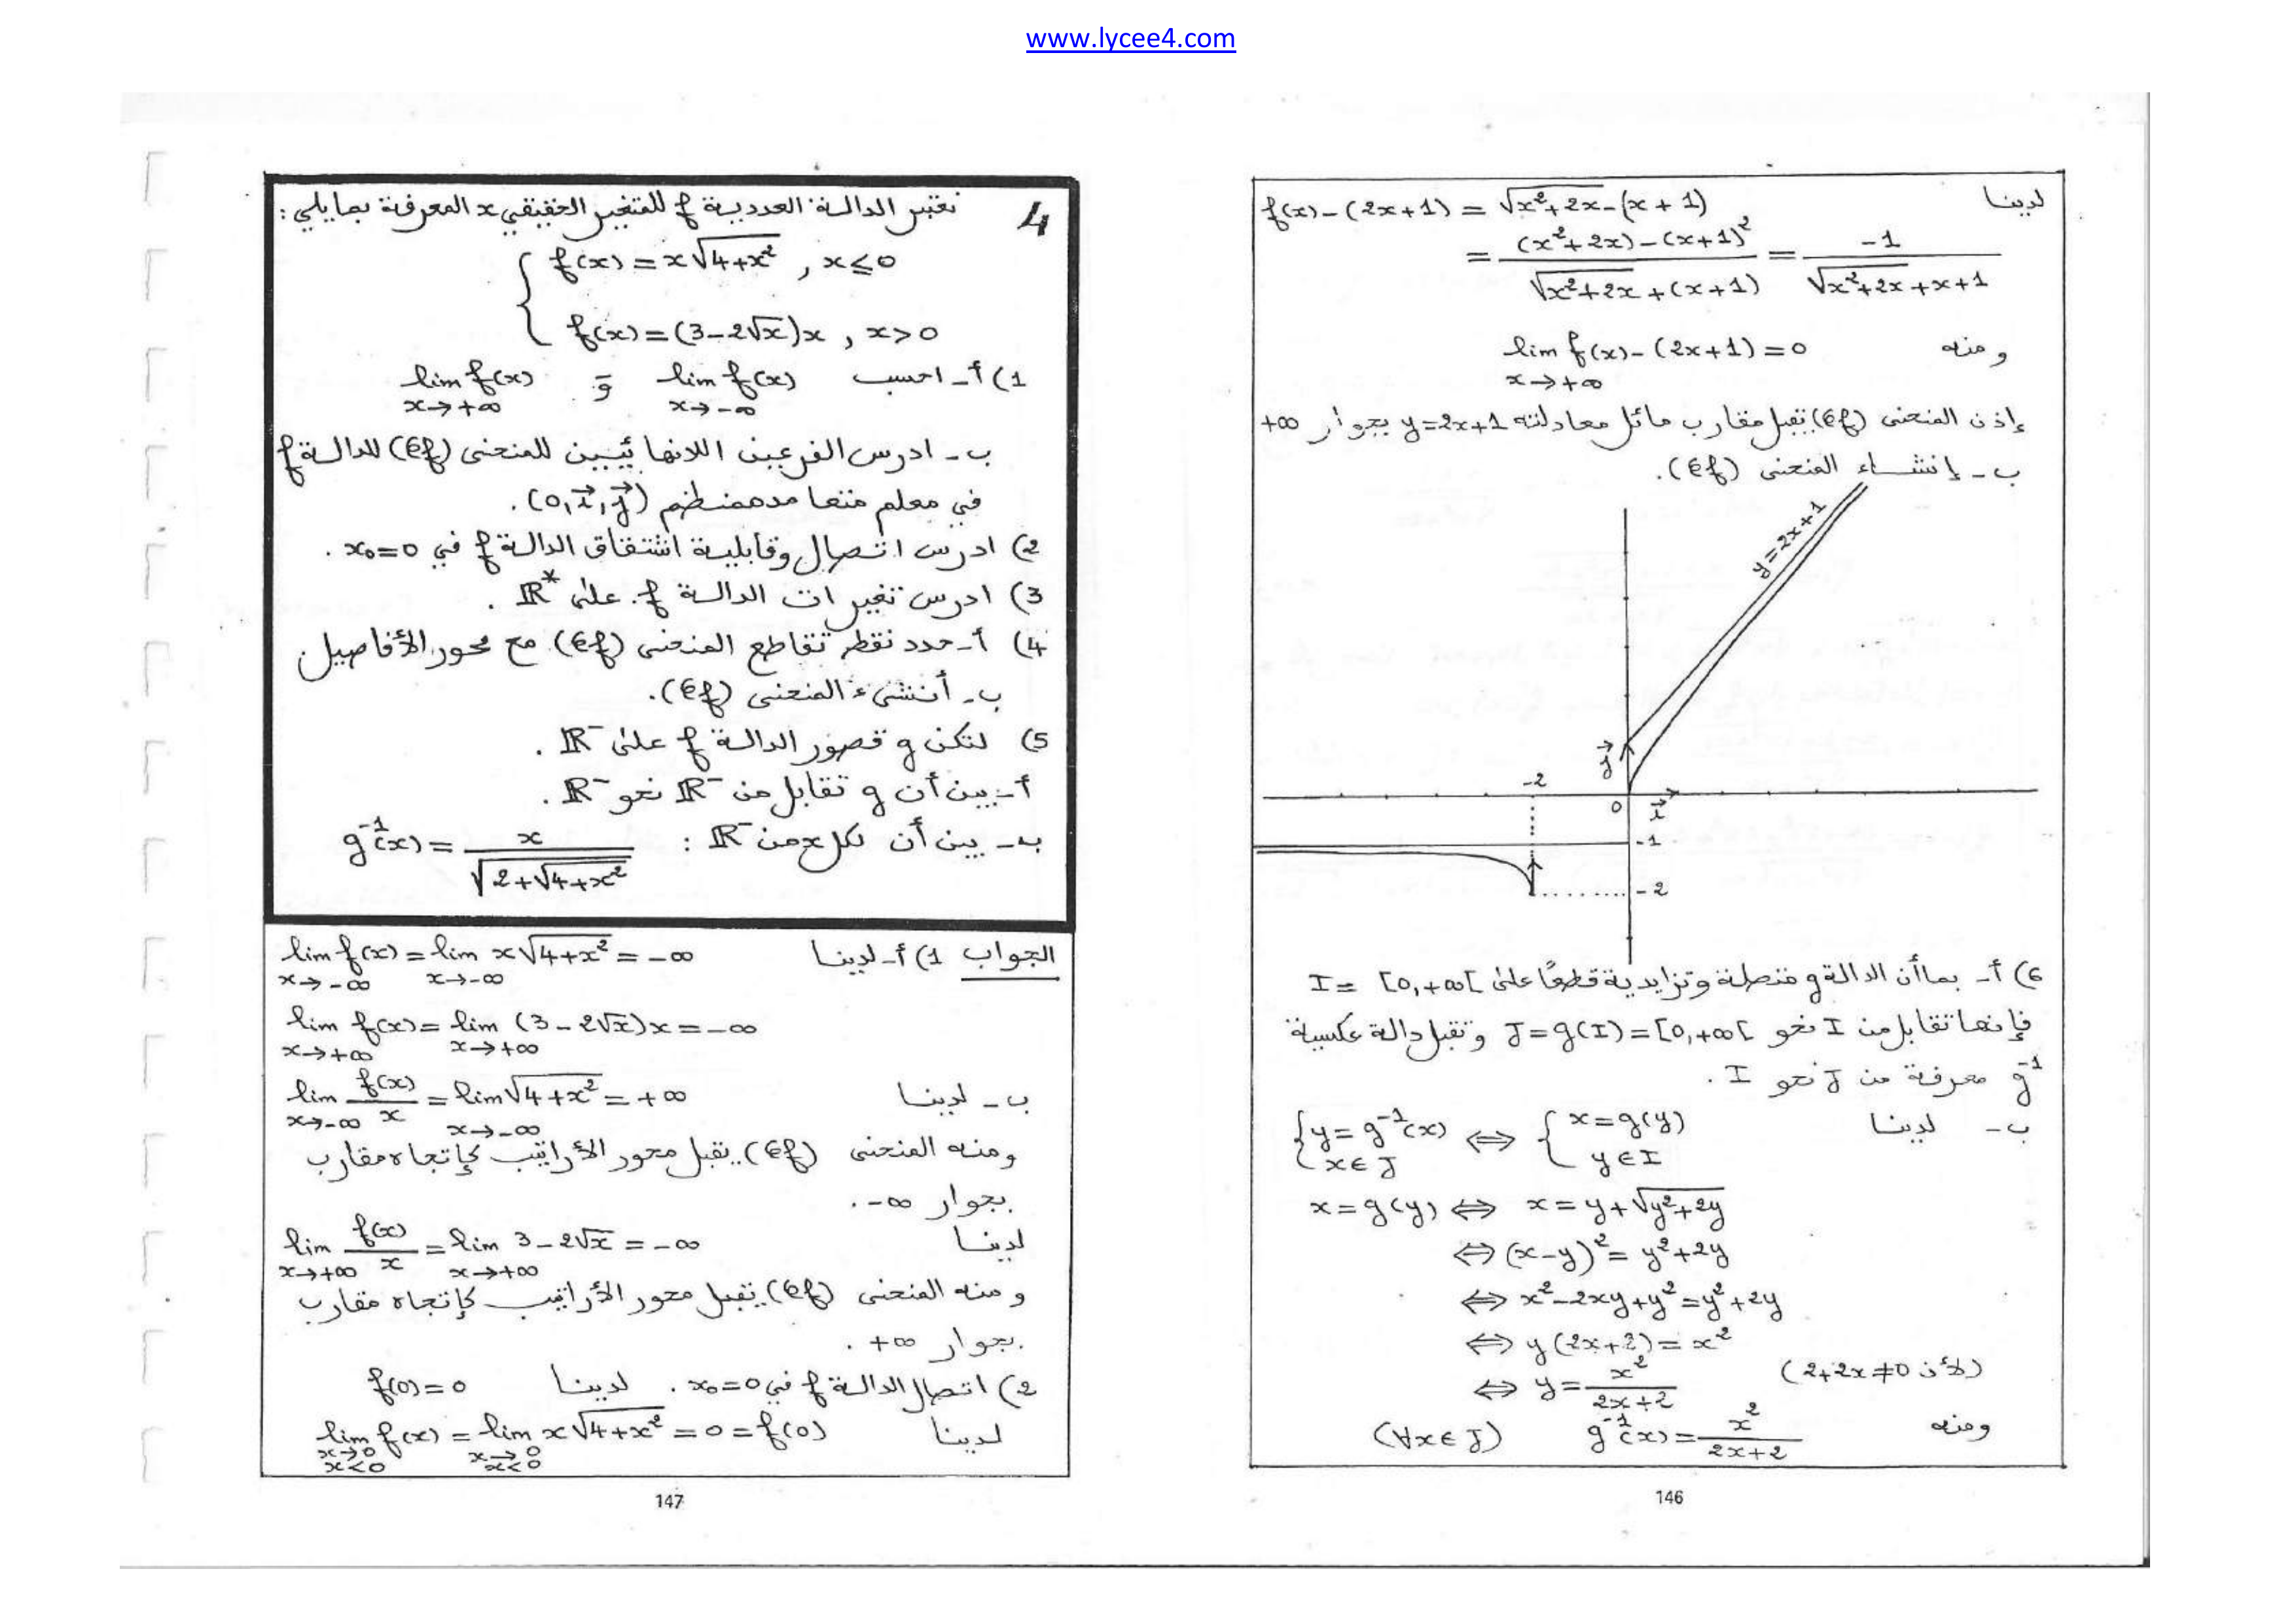 www.lycee4.com
لدينا f(x)-(2x+1) = √(x²+2x) - (x+1)
= ((x²+2x)-(x+1)²)/(√(x²+2x)+(x+1)) = -1/(√(x²+2x)+x+1)
ومنه lim f(x)-(2x+1)=0
x→+∞
إذن المنحنى (Cf) يقبل مقارب مائل معادلته y=2x+1 بجوار +∞
ب- إنشاء المنحنى (Cf).
y=2x+1
j⃗
-2
0 i⃗
-1
-2
6) أ- بما أن الدالة g متصلة وتزايدية قطعًا على I= [0,+∞[
فإنها تقابل من I نحو J=g(I)=[0,+∞[ وتقبل دالة عكسية
g⁻¹ معرفة من J نحو I .
ب- لدينا { y=g⁻¹(x) ⇔ { x=g(y)
x∈J y∈I
x=g(y) ⇔ x=y+√(y²+2y)
⇔ (x-y)²= y²+2y
⇔ x²-2xy+y²=y²+2y
⇔ y(2x+2)=x²
⇔ y= x²/(2x+2) (لأن 2+2x≠0)
ومنه g⁻¹(x)= x²/(2x+2) (∀x∈J)
146
4 نعتبر الدالة العددية f للمتغير الحقيقي x المعرفة بمايلي:
{ f(x)=x√(4+x²) , x≤0
f(x)=(3-2√x)x , x>0
1) أ- احسب lim f(x) و lim f(x)
x→-∞ x→+∞
ب- ادرس الفرعين اللانهائيين للمنحنى (Cf) للدالة f
في معلم متعامد ممنظم (0,i⃗,j⃗) .
2) ادرس اتصال وقابلية اشتقاق الدالة f في x₀=0 .
3) ادرس تغيرات الدالة f على ℝ* .
4) أ- حدد نقط تقاطع المنحنى (Cf) مع محور الأفاصيل.
ب- أنشئ المنحنى (Cf).
5) لتكن g قصور الدالة f على ℝ⁻ .
أ- بين أن g تقابل من ℝ⁻ نحو ℝ⁻ .
ب- بين أن لكل x من ℝ⁻ : g⁻¹(x)= x/√(2+√(4+x²))
الجواب 1) أ- لدينا lim f(x)=lim x√(4+x²)=-∞
x→-∞ x→-∞
lim f(x)=lim (3-2√x)x=-∞
x→+∞ x→+∞
ب- لدينا lim f(x)/x =lim √(4+x²)=+∞
x→-∞ x→-∞
ومنه المنحنى (Cf) يقبل محور الأراتيب كإتجاه مقارب
بجوار -∞.
لدينا lim f(x)/x =lim 3-2√x=-∞
x→+∞ x→+∞
ومنه المنحنى (Cf) يقبل محور الأراتيب كإتجاه مقارب
بجوار +∞ .
2) اتصال الدالة f في x₀=0 . لدينا f(0)=0
لدينا lim f(x)=lim x√(4+x²)=0=f(0)
x→0 x→0
x<0 x<0
147